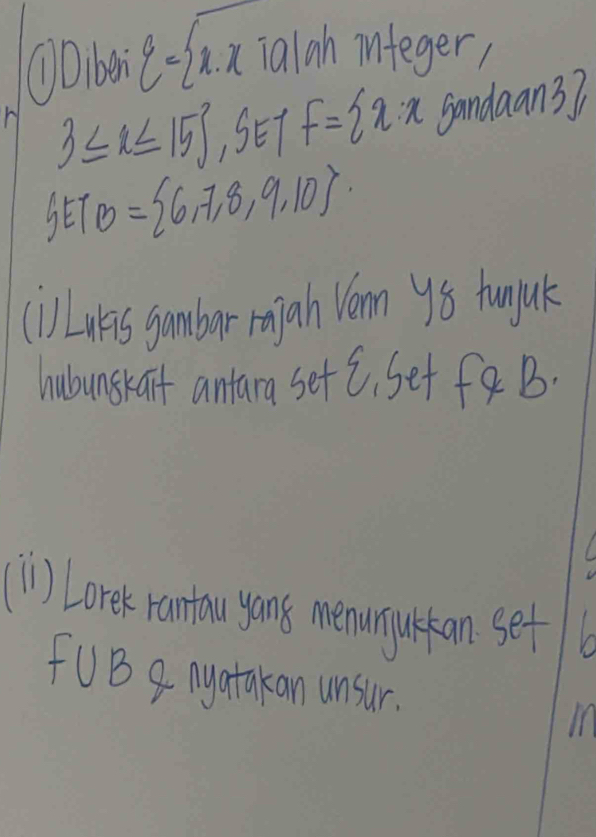 ① Diberi ξ = {x : x ialah integer,
3 ≤ x ≤ 15}, SET F = {x : x gandaan 3},
SET B = {6, 7, 8, 9, 10}.
(i) Lukis gambar rajah Venn yg tunjuk
hubungkait antara set ξ, Set F & B.
(ii) Lorek rantau yang menunjukkan set
F U B & nyatakan unsur.